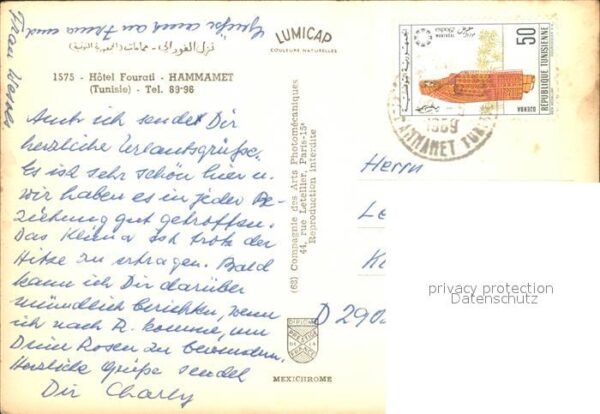 Grüße auch an Firma und
Frau Weiser
LUMICAP
COULEURS NATURELLES
نزل الفوراتي - حمامات (الجمهورية التونسية)
1575 - Hôtel Fourati - HAMMAMET
(Tunisie) - Tel. 89-96
Auch ich sende Dir
herzliche Urlaubsgrüße.
Es ist sehr schön hier u.
wir haben es in jeder Be-
ziehung gut getroffen.
Das Klima ist trotz der
Hitze zu ertragen. Bald
kann ich Dir darüber
mündlich berichten, wenn
ich nach R. komme, um
Deine Rosen zu bewundern.
Herzliche Grüße sendet
Dir Charly
(63) Compagnie des Arts Photomécaniques
44, rue Letellier, Paris-15e
Reproduction interdite
MEXICHROME
50
REPUBLIQUE TUNISIENNE
DJERBA
1969
HAMMAMET
Herrn
Le
K
D 290
privacy protection
Datenschutz